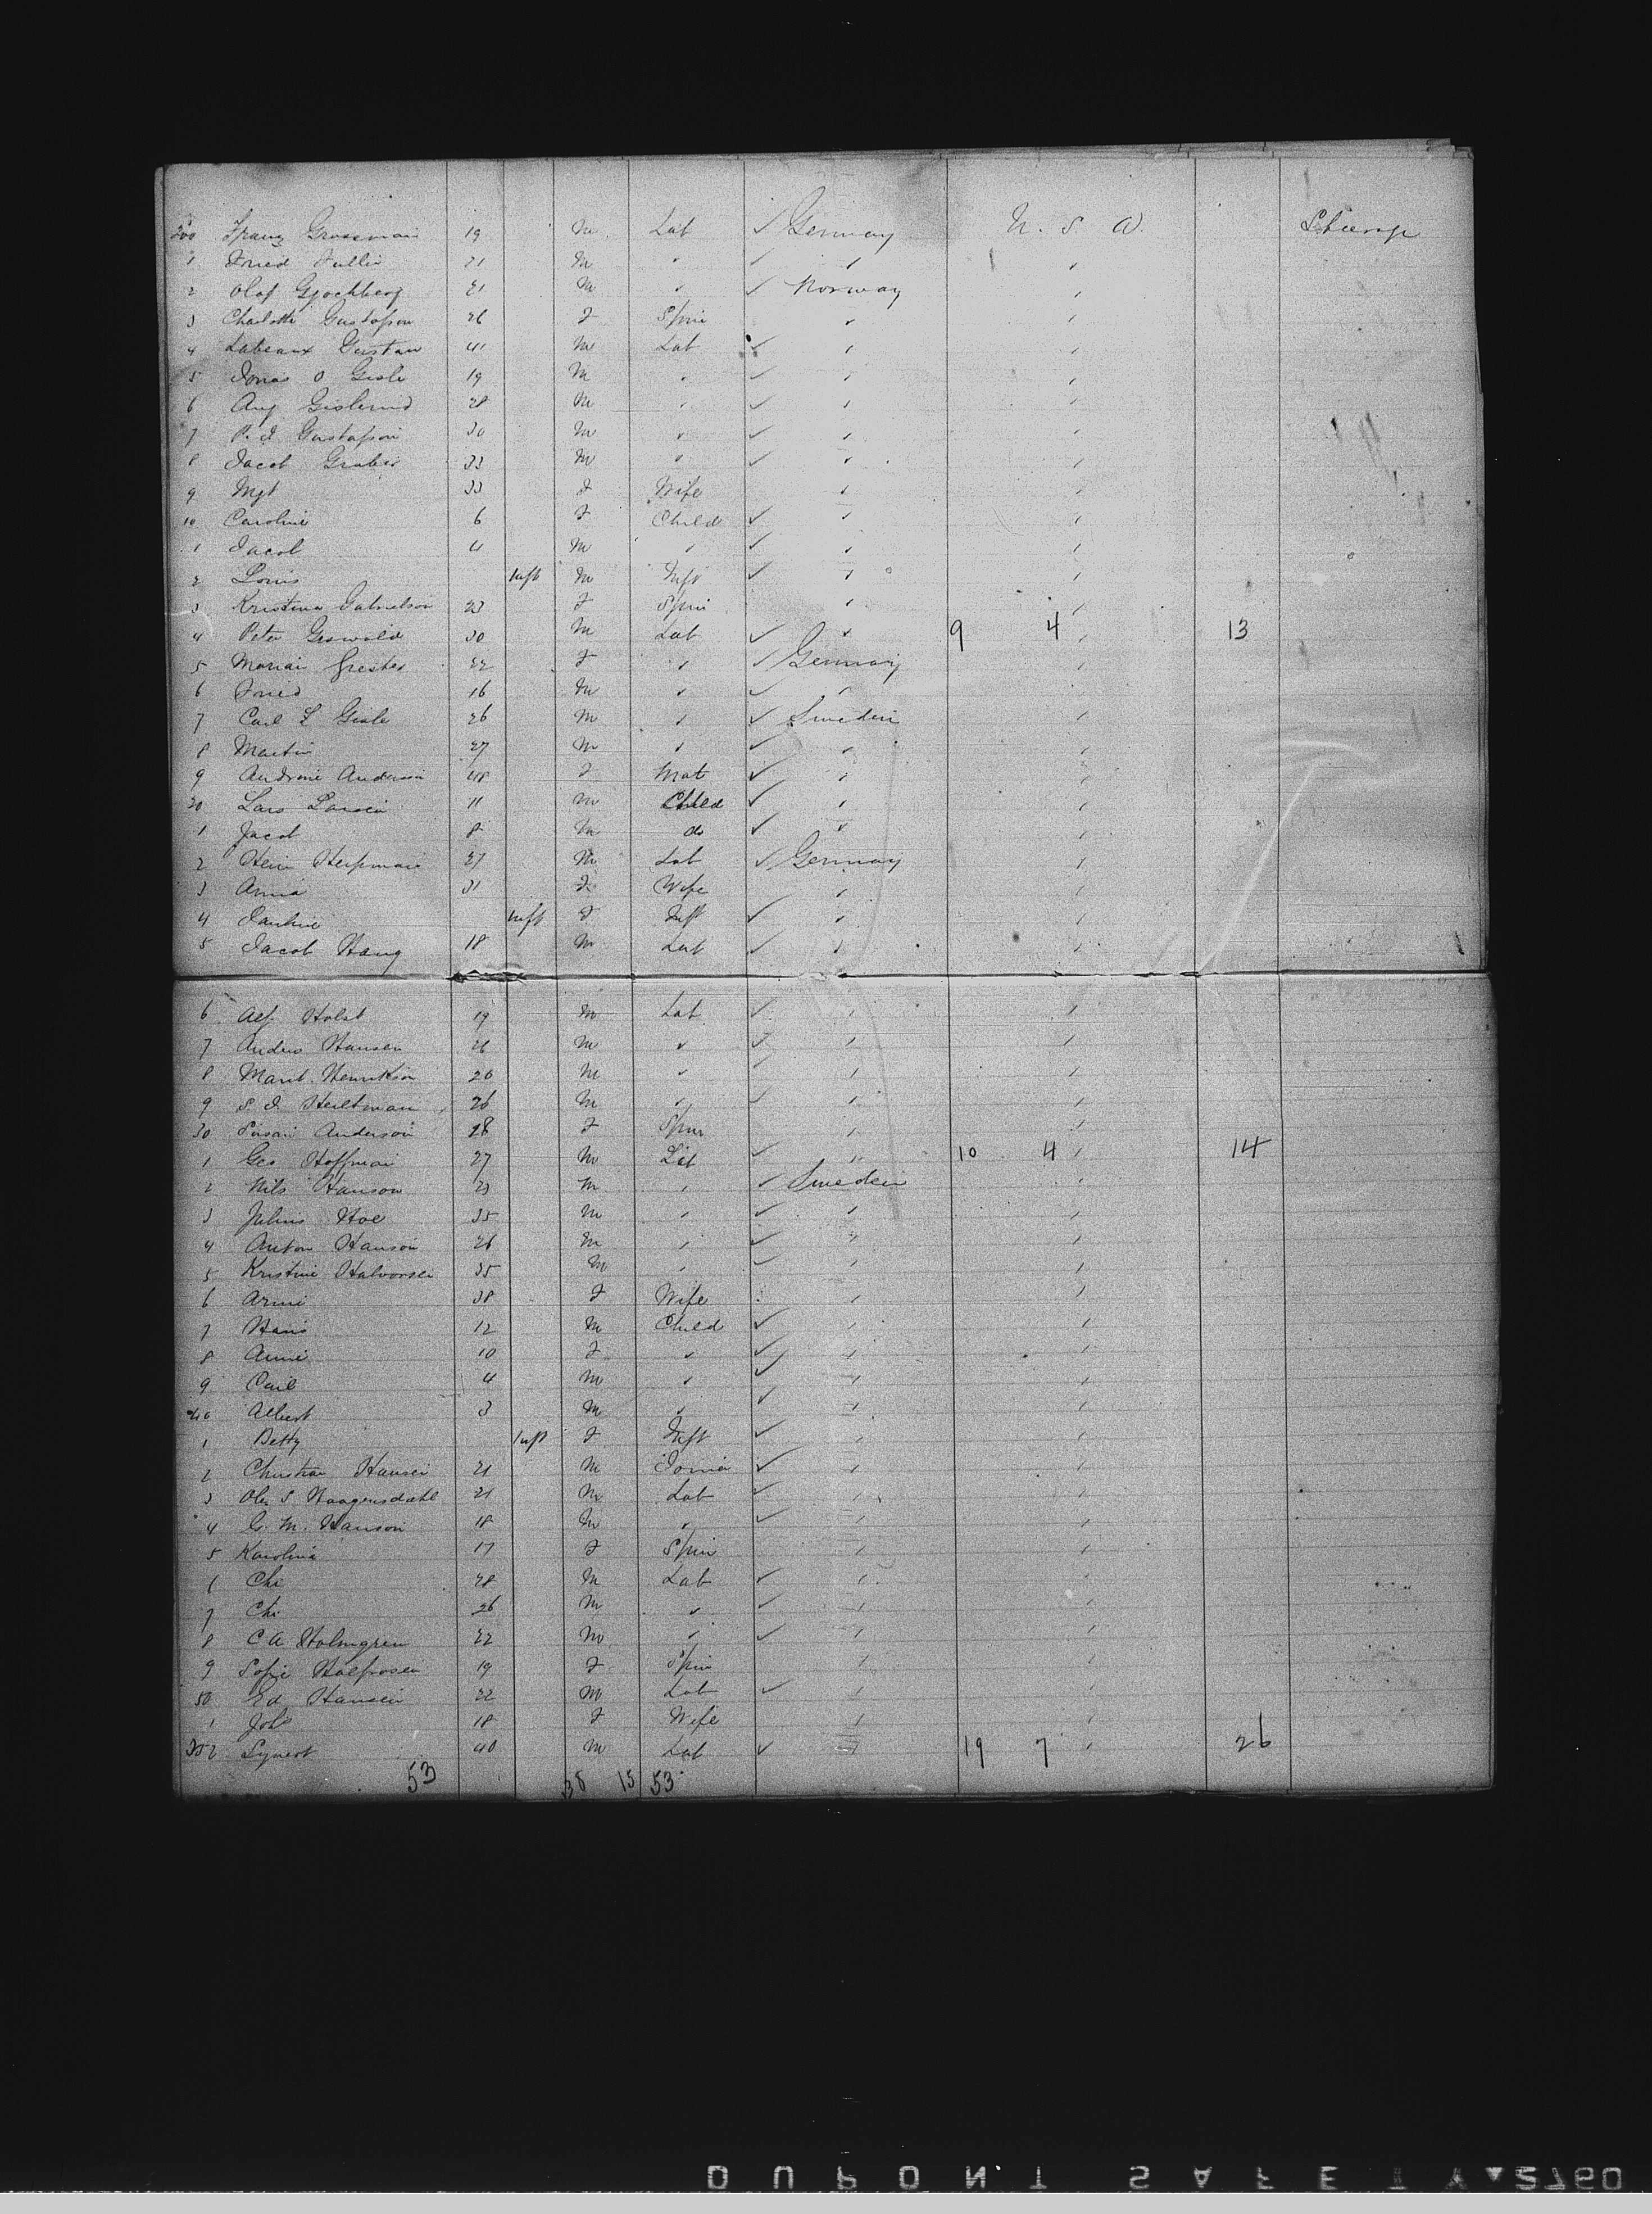 200 Franz Grossman 19 M Lab ✓ Germany U. S. A. Steerage
1 21 M " ✓ "
2 Olaf 21 M " ✓ Norway
3 Charlotte Gustafson 26 F Spin "
4 Gustav 41 M Lab ✓ "
5 Jonas O Gisle 19 M " ✓ "
6 Aug 28 M " ✓ "
7 P. J. Gustafson 30 M " ✓ "
8 Jacob Gruber 33 M " ✓ "
9 Mgt 33 F Wife "
10 Caroline 6 F Child ✓ "
1 Jacob 4 M " ✓ "
2 Louis Inft M Inft ✓ "
3 Kristina Gabrielson 23 F Spin "
4 Peter Griswold 30 M Lab ✓ " 9 4 13
5 22 F " ✓ Germany
6 Fried 16 M " ✓ "
7 Carl L Gisle 26 M " ✓ Sweden
8 Martin 27 M " ✓ "
9 Anderson 48 F Mat ✓ "
20 Lars Larsen 11 M Child ✓ "
1 Jacob 8 M do ✓ "
2 Hein 27 M Lab ✓ Germany
3 Anna 31 F Wife "
4 Inft F Inft ✓ "
5 Jacob Haug 18 M Lab ✓ "
6 Alf Holst 19 M Lab ✓ "
7 Anders Hansen 26 M " ✓ "
8 Henrikson 20 M " ✓ "
9 S. J. Hultman 26 M " ✓ "
30 Susan Anderson 28 F Spin "
1 Geo Hoffman 27 M Lab ✓ " 10 4 14
2 Nils Hanson 23 M " ✓ Sweden
3 Julius Hoe 35 M " ✓ "
4 Anton Hanson 26 M " ✓ "
5 Kristine Halvorsen 35 M " ✓ "
6 38 F Wife "
7 Hans 12 M Child ✓ "
8 Anne 10 F " ✓ "
9 Carl 4 M " ✓ "
40 Albert 3 M " ✓ "
1 Betty Inft F Inft ✓ "
2 Christian Hansen 21 M ✓ "
3 Ole S Haagensdahl 21 M Lab ✓ "
4 C. M. Hanson 18 M " ✓ "
5 Karolina 17 F Spin "
6 Chr 28 M Lab ✓ "
7 Chr 26 M " ✓ "
8 C A Holmgren 22 M " ✓ "
9 Sofie 19 F Spin "
50 Ed Hansen 22 M Lab ✓ "
1 18 F Wife "
252 40 M Lab ✓ " 19 7 26
53 38 15 53
DUPONT SAFETY 2760